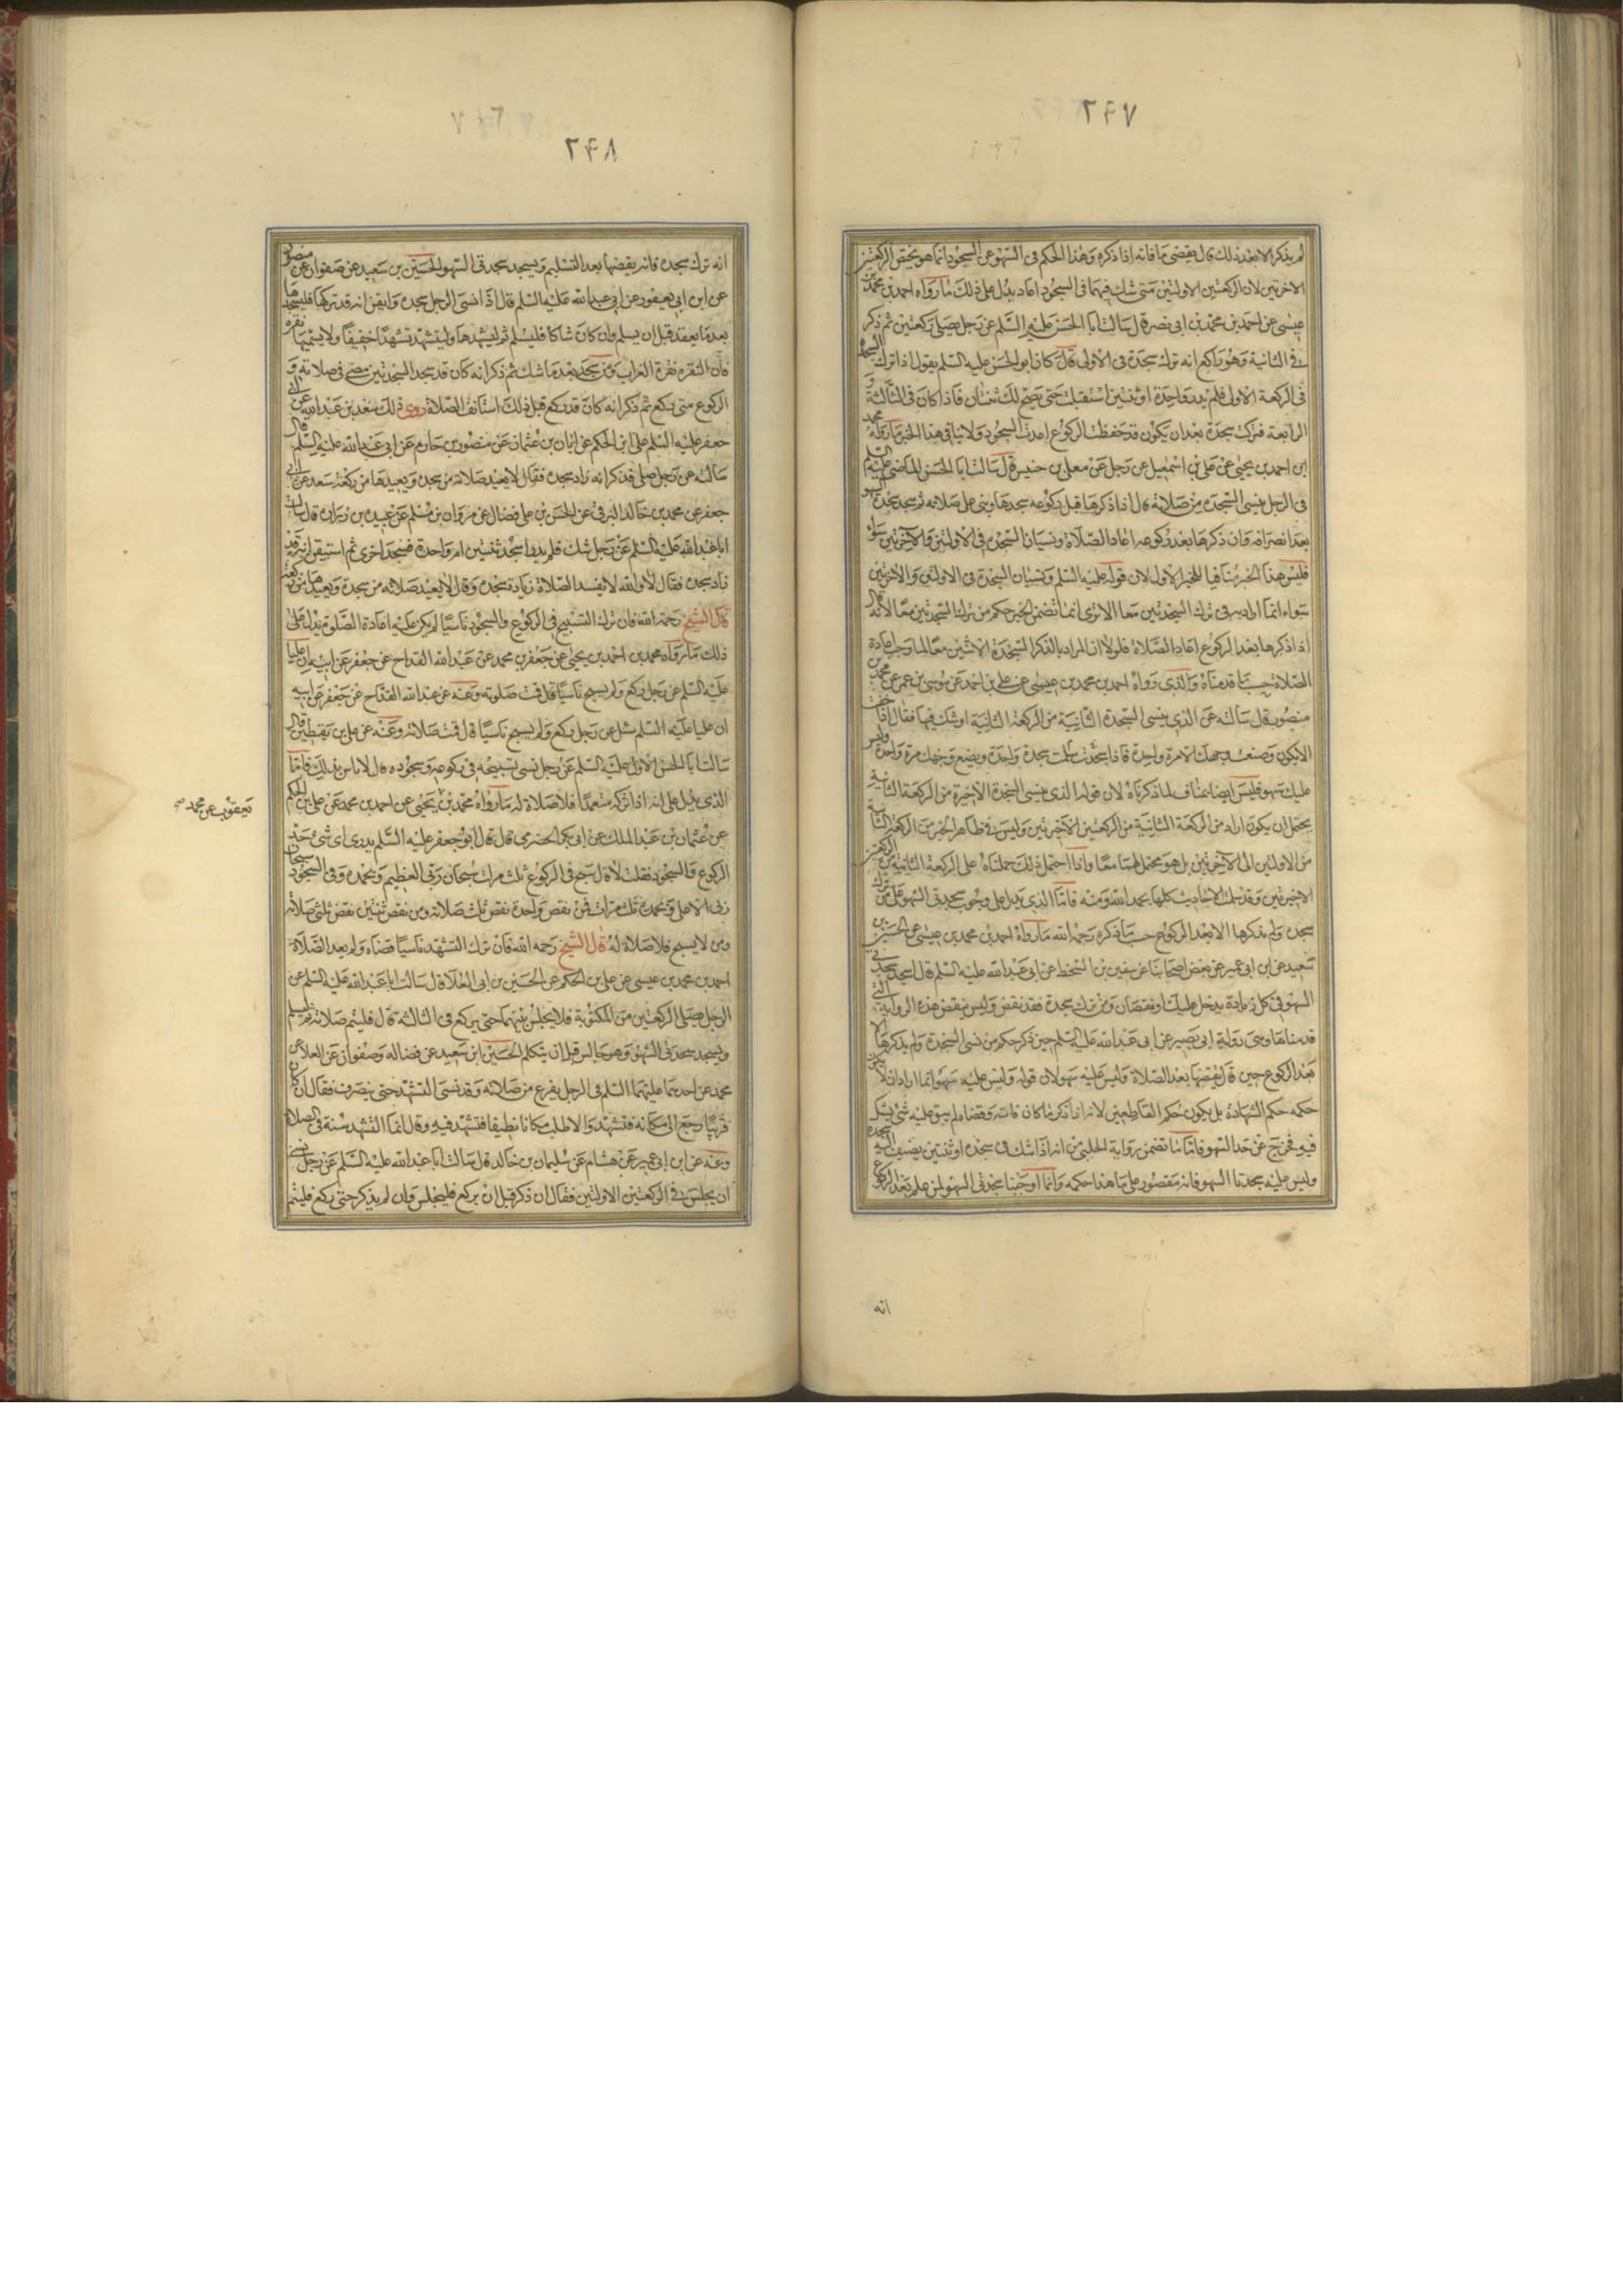 ٢٤٧
لم يذكر الا بعد ذلك قال يقضى ما فاته اذا ذكره وهذا الحكم فى السهو عن السجود انما هو يختص الركعتين
الاخرتين لان الركعتين الاولتين متى شك فيهما فى السجود اعاد يدل على ذلك ما رواه احمد بن محمد بن
عيسى عن احمد بن محمد بن ابى نصر قال سالت ابا الحسن عليه السلم عن رجل يصلى ركعتين ثم ذكر
فى الثانية وهو راكع انه ترك سجدة فى الاولى قال كان ابو الحسن عليه السلم يقول اذا تركت السجدة
فى الركعة الاولى فلم يدر واحدة او ثنتين استقبلت حتى يصح لك ثنتان فاذا كان فى الثالثة و
الرابعة فتركت سجدة بعد ان يكون قد حفظت الركوع اعدت السجود ولا ينافى هذا الخبر ما رواه محمد
بن احمد بن يحيى عن على بن اسمعيل عن رجل عن معلى بن خنيس قال سالت ابا الحسن الماضى عليه السلم
فى الرجل ينسى السجدة من صلاته قال اذا ذكرها قبل ركوعه سجدها وبنى على صلاته ثم سجد سجدتى السهو
بعد انصرافه وان ذكرها بعد ركوعه اعاد الصلاة ونسيان السجدة فى الاولتين والاخرتين سواء
فليس هذا الخبر منافيا للخبر الاول لان قوله عليه السلم ونسيان السجدة فى الاولتين والاخرتين
سواء انما اراد به فى ترك السجدتين معا الا ترى انما تضمن الخبر حكم من ترك السجدتين معا لانه قال
اذا ذكرها بعد الركوع اعاد الصلاة فلولا ان المراد بالذكر السجدة الاثنتين معا لما وجب اعادة
الصلاة حسب ما قدمناه والذى رواه احمد بن محمد بن عيسى عن على بن احمد عن موسى بن عمر عن محمد بن
منصور قال سالته عن الذى ينسى السجدة الثانية من الركعة الثانية او شك فيها فقال اذا خفت
الا يكون وضعت وجهك الا مرة واحدة فاذا سلمت سجدت سجدة واحدة وتضع وجهك مرة واحدة وليس
عليك سهو فليس ايضا بمناف لما ذكرناه لان قوله الذى ينسى السجدة الاخيرة من الركعة الثانية
يحتمل ان يكون اراد من الركعة الثانية من الركعتين الاخرتين وليس فى ظاهر الخبر من الركعة الثانية
من الاولتين الى الاخرتين بل هو محتمل لهما معا واذا احتمل ذلك حملناه على الركعة الثانية من الركعتين
الاخيرتين وقد سلمت الاحاديث كلها بحمد الله ومنه فاما الذى يدل على وجوب سجدتى السهو على من ترك
سجدة ولم يذكرها الا بعد الركوع حسب ما ذكره رحمه الله ما رواه احمد بن محمد بن عيسى عن الحسين بن
سعيد عن ابن ابى عمير عن بعض اصحابنا عن سفين بن السمط عن ابى عبد الله عليه السلم قال تسجد سجدتى
السهو فى كل زيادة يدخل عليك او نقصان ومن ترك سجدة فقد نقص وليس ينقض هذه الرواية التى
قدمناها وهى رواية ابى بصير عن ابى عبد الله عليه السلم حين ذكر حكم من نسى السجدة ولم يذكرها الا
بعد الركوع حين قال يقضيها بعد الصلاة وليس عليه سهو لان قوله وليس عليه سهو انما اراد انه لا يكون
حكمه حكم الشهادة بل يكون حكم القاطعين لانه اذا ذكر ما كان فاته وقضاه لم يبق عليه شئ يشك
فيه فخرج عن حد السهو فاما ما تضمن رواية الحلبى من انه اذا شك فى سجدة او ثنتين يضيف اليه سجدة
وليس عليه سجدتا السهو فانه مقصور على ما هذا حكمه وانما اوجبنا سجدتى السهو لمن علم بعد الركوع
انه
٢٤٨
انه ترك سجدة فانه يقضيها بعد التسليم ويسجد سجدتى السهو الحسين بن سعيد عن صفوان عن منصور
عن ابن ابى يعفور عن ابى عبد الله عليه السلم قال اذا نسى الرجل سجدة وايقن انه قد تركها فليسجدها
بعد ما يقعد قبل ان يسلم وان كان شاكا فليسلم ثم ليسجدها وليتشهد تشهدا خفيفا ولا يسميها نقرة
فان النقرة نقرة الغراب ومن سجد بعد ما شك ثم ذكر انه كان قد سجد السجدتين مضى فى صلاته و
الركوع متى ركع ثم ذكر انه كان قد ركع قبل ذلك استانف الصلاة روى ذلك سعد بن عبد الله عن ابى
جعفر عن على بن الحكم عن ابان بن عثمان عن منصور بن حازم عن ابى عبد الله عليه السلم قال
سالته عن رجل صلى فذكر انه زاد سجدة فقال لا يعيد صلاته من سجدة ويعيدها من ركعة سعد عن ابى
جعفر عن محمد بن خالد البرقى عن الحسن بن على فضال عن مروان بن مسلم عن عبيد بن زرارة قال سالت
ابا عبد الله عليه السلم عن رجل شك فلم يدر اسجد ثنتين ام واحدة فسجد اخرى ثم استيقن انه قد
زاد سجدة فقال لا والله لا يفسد الصلاة زيادة سجدة وقال لا يعيد صلاته من سجدة ويعيدها من ركعة
قال الشيخ رحمه الله فان ترك التسبيح فى الركوع والسجود ناسيا لم يكن عليه اعادة الصلوة يدل على
ذلك ما رواه محمد بن احمد بن يحيى عن جعفر بن محمد عن عبد الله القداح عن جعفر عن ابيه ان عليا
عليه السلم عن رجل ركع ولم يسبح ناسيا قال تمت صلوته وعنه عن عبد الله القداح عن جعفر عن ابيه
ان عليا عليه السلم سئل عن رجل ركع ولم يسبح ناسيا قال تمت صلاته وعنه عن على بن يقطين قال
سالت ابا الحسن الاول عليه السلم عن رجل نسى تسبيحه فى ركوعه وسجوده قال لا باس بذلك فاما
الذى يدل على انه اذا تركه متعمدا فلا صلاة له ما رواه محمد بن يحيى عن احمد بن محمد عن على بن الحكم
يعقوب عن محمد صح
عن عثمان بن عبد الملك عن ابى بكر الحضرمى قال قال ابو جعفر عليه السلم تدرى اى شئ حد
الركوع والسجود فقلت لا قال تسبح فى الركوع ثلث مرات سبحان ربى العظيم وبحمده وفى السجود سبحان
ربى الاعلى وبحمده ثلث مرات فمن نقص واحدة نقص ثلث صلاته ومن نقص ثنتين نقص ثلثى صلاته
ومن لا يسبح فلا صلاة له قال الشيخ رحمه الله فان ترك التشهد ناسيا قضاه ولم يعد الصلاة
احمد بن محمد بن عيسى عن على بن الحكم عن الحسين بن ابى العلا قال سالت ابا عبد الله عليه السلم عن
الرجل يصلى الركعتين من المكتوبة فلا يجلس بينهما حتى يركع فى الثالثة قال فليتم صلاته ثم ليسلم
ويسجد سجدتى السهو وهو جالس قبل ان يتكلم الحسين ابن سعيد عن فضاله وصفوان عن العلا عن
محمد عن احدهما عليهما السلم فى الرجل يفرغ من صلاته وقد نسى التشهد حتى ينصرف فقال ان كان
قريبا رجع الى مكانه فتشهد والا طلب مكانا نظيفا فتشهد فيه وقال انما التشهد سنة فى الصلاة
وعنه عن ابن ابى عمير عن هشام عن سليمان بن خالد قال سالت ابا عبد الله عليه السلم عن رجل نسى
ان يجلس فى الركعتين الاولتين فقال ان ذكر قبل ان يركع فليجلس وان لم يذكر حتى يركع فليتم